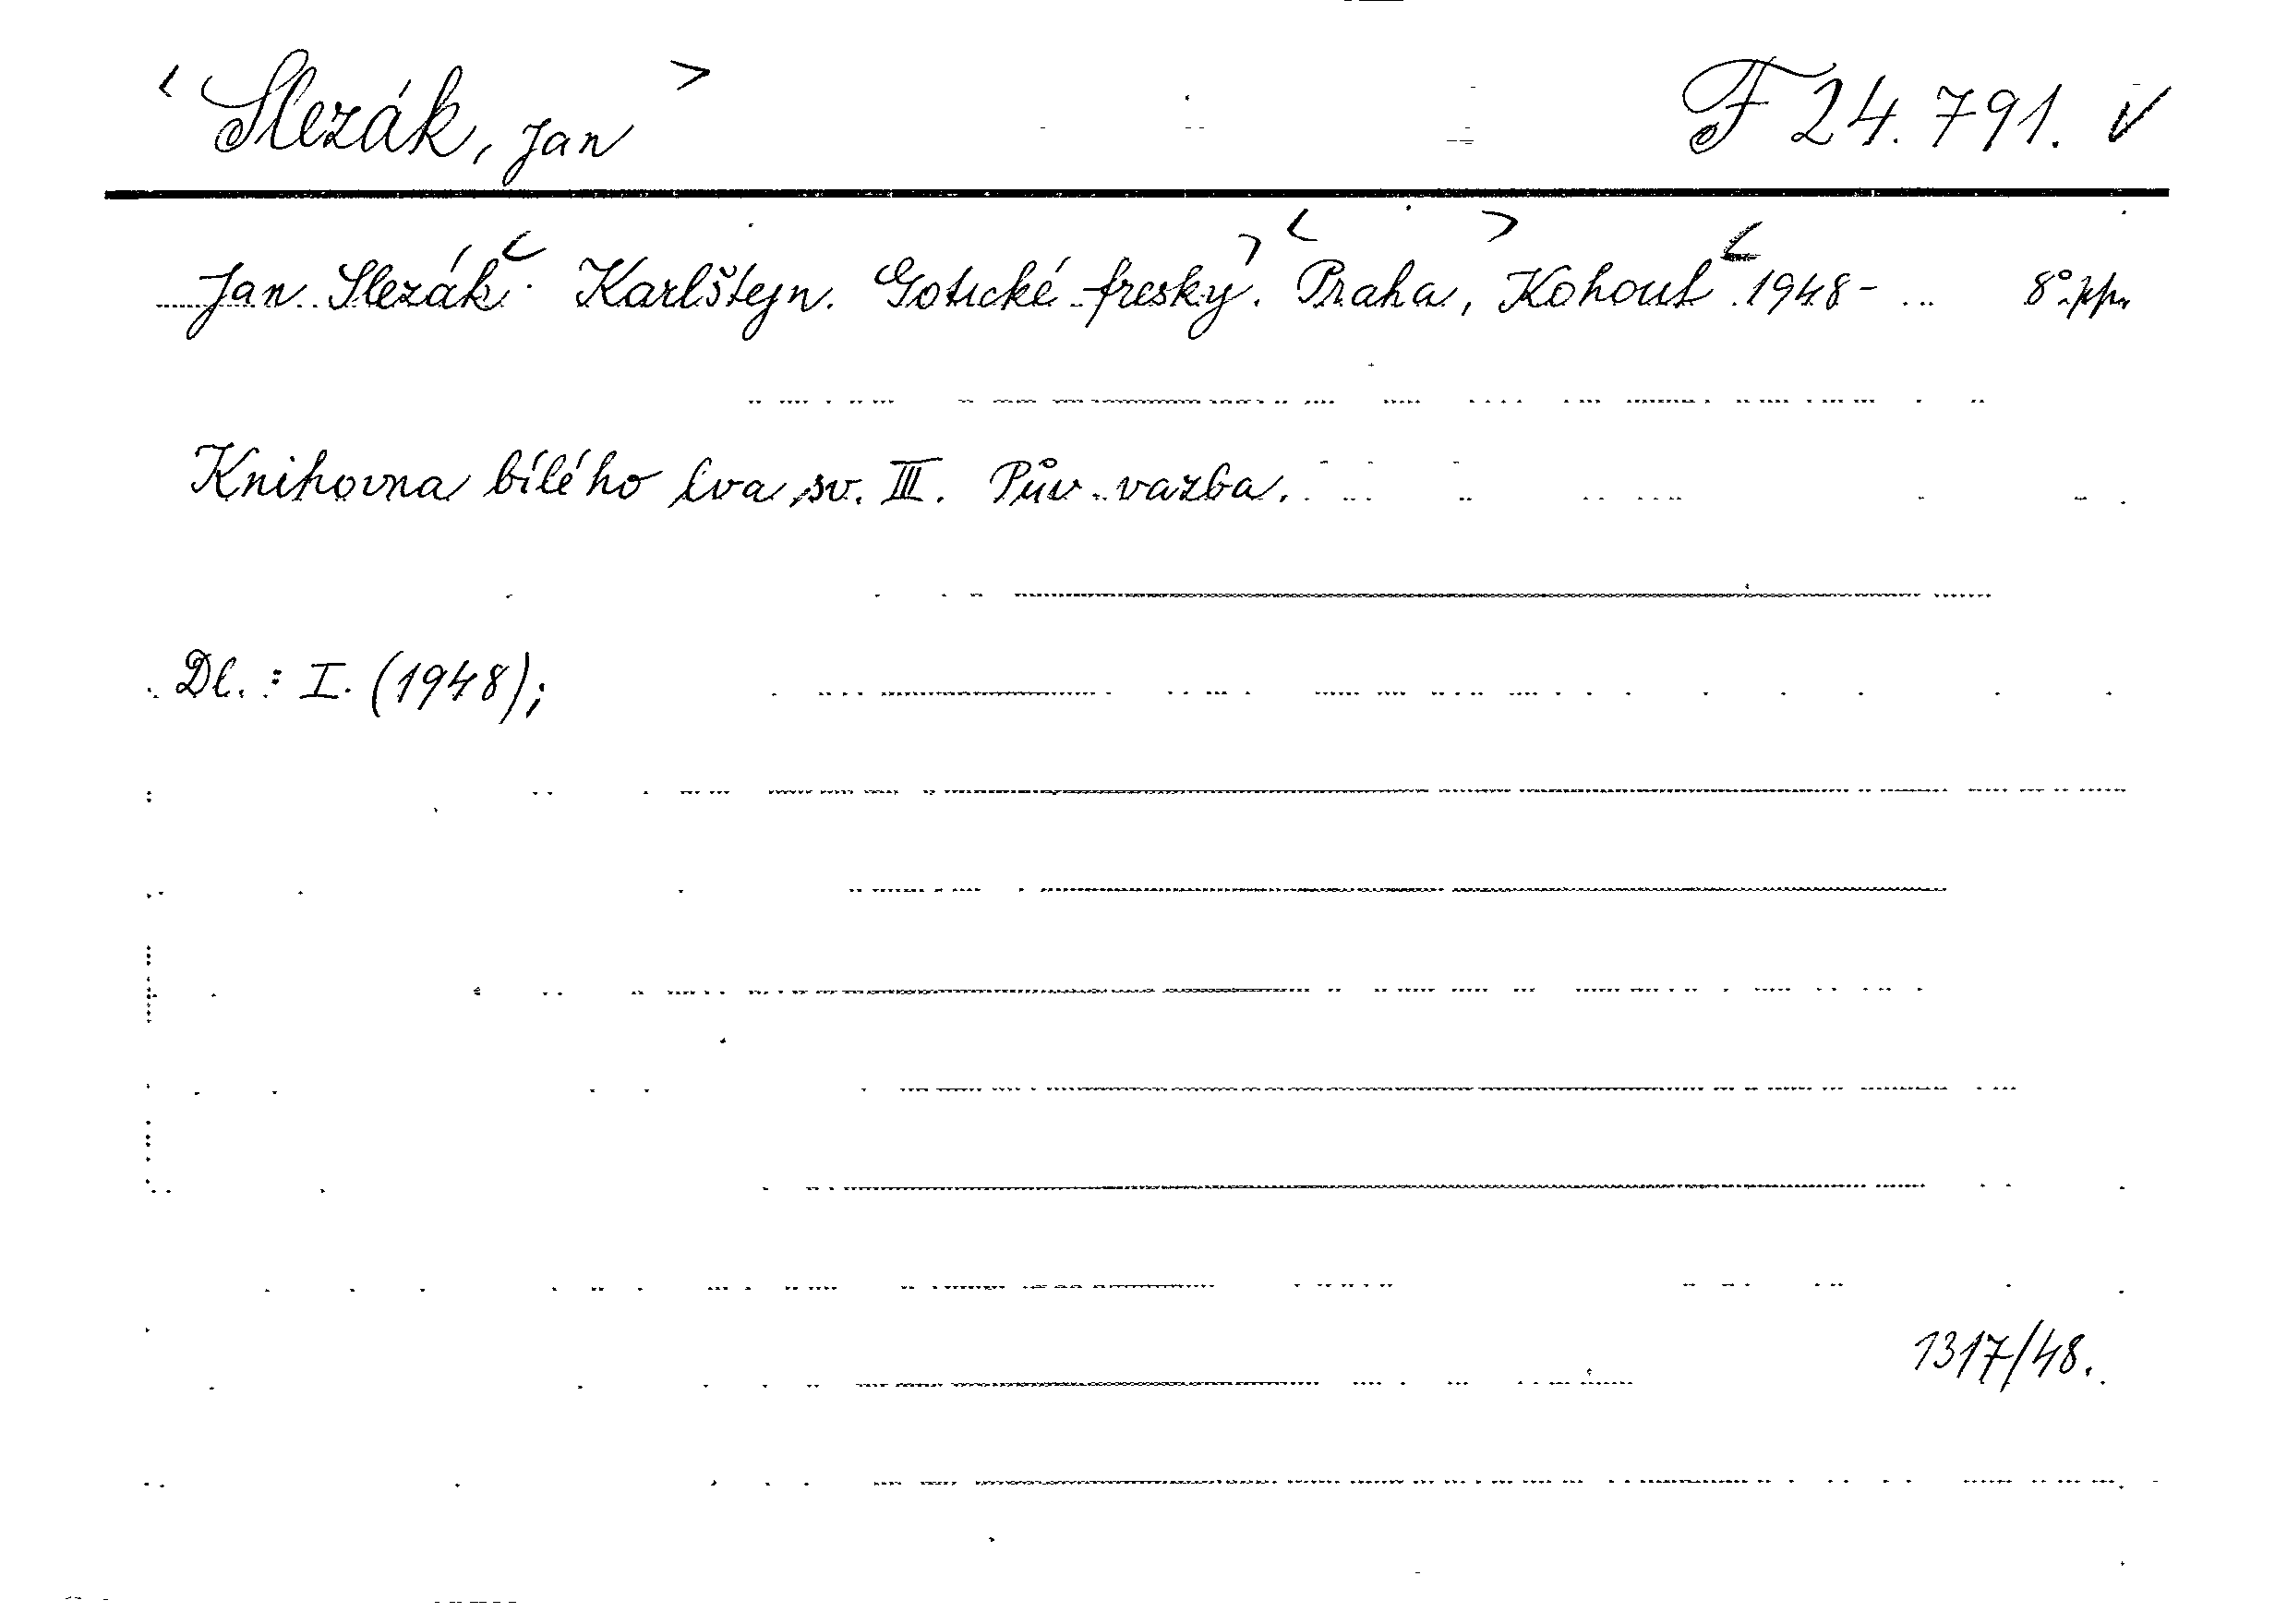 < Slezák, Jan > F 24.791. V
Jan Slezák: < Karlštejn. Gotické fresky. > < Praha, Kohout > < 1948- 8°.
Knihovna bílého lva, sv. III. Pův. vazba.
Dl.: I. (1948);
1317/48.